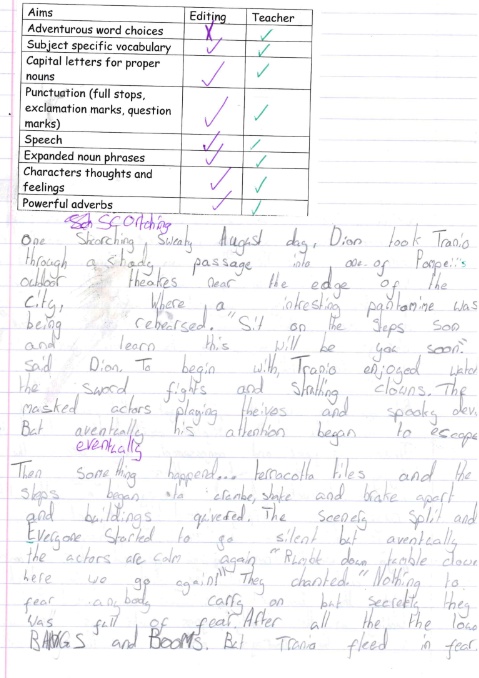 Aims Editing Teacher
Adventurous word choices X ✓
Subject specific vocabulary ✓ ✓
Capital letters for proper nouns ✓ ✓
Punctuation (full stops, exclamation marks, question marks) ✓ ✓
Speech ✓ ✓
Expanded noun phrases ✓ ✓
Characters thoughts and feelings ✓ ✓
Powerful adverbs ✓ ✓
Scortching
One Skorching, Sweaty August day, Dion took Tranio
through a shady passage into one of Pompeii's
outdoor theatres near the edge of the
City, Where a intresting pantomine was
being rehearsed. "Sit on the steps son
and learn this will be you soon."
Said Dion. To begin with, Tranio enjoyed watch
the sword fights and clowns. The
masked actors playing theives and spooky devi
But aventually his attention began to escape
eventually
Then Something happend... terracotta tiles and the
steps began to shake and brake apart
and buildings quivered. The Scenery Split and
Everyone Started to go silent but aventually
the actors are calm again "Rumble down tumble clown
here we go again!" They chanted. "Nothing to
fear anybody carry on but secretly they
Was full of fear. After all the the loud
BANGS and BOOMS. But Tranio fleed in fear.